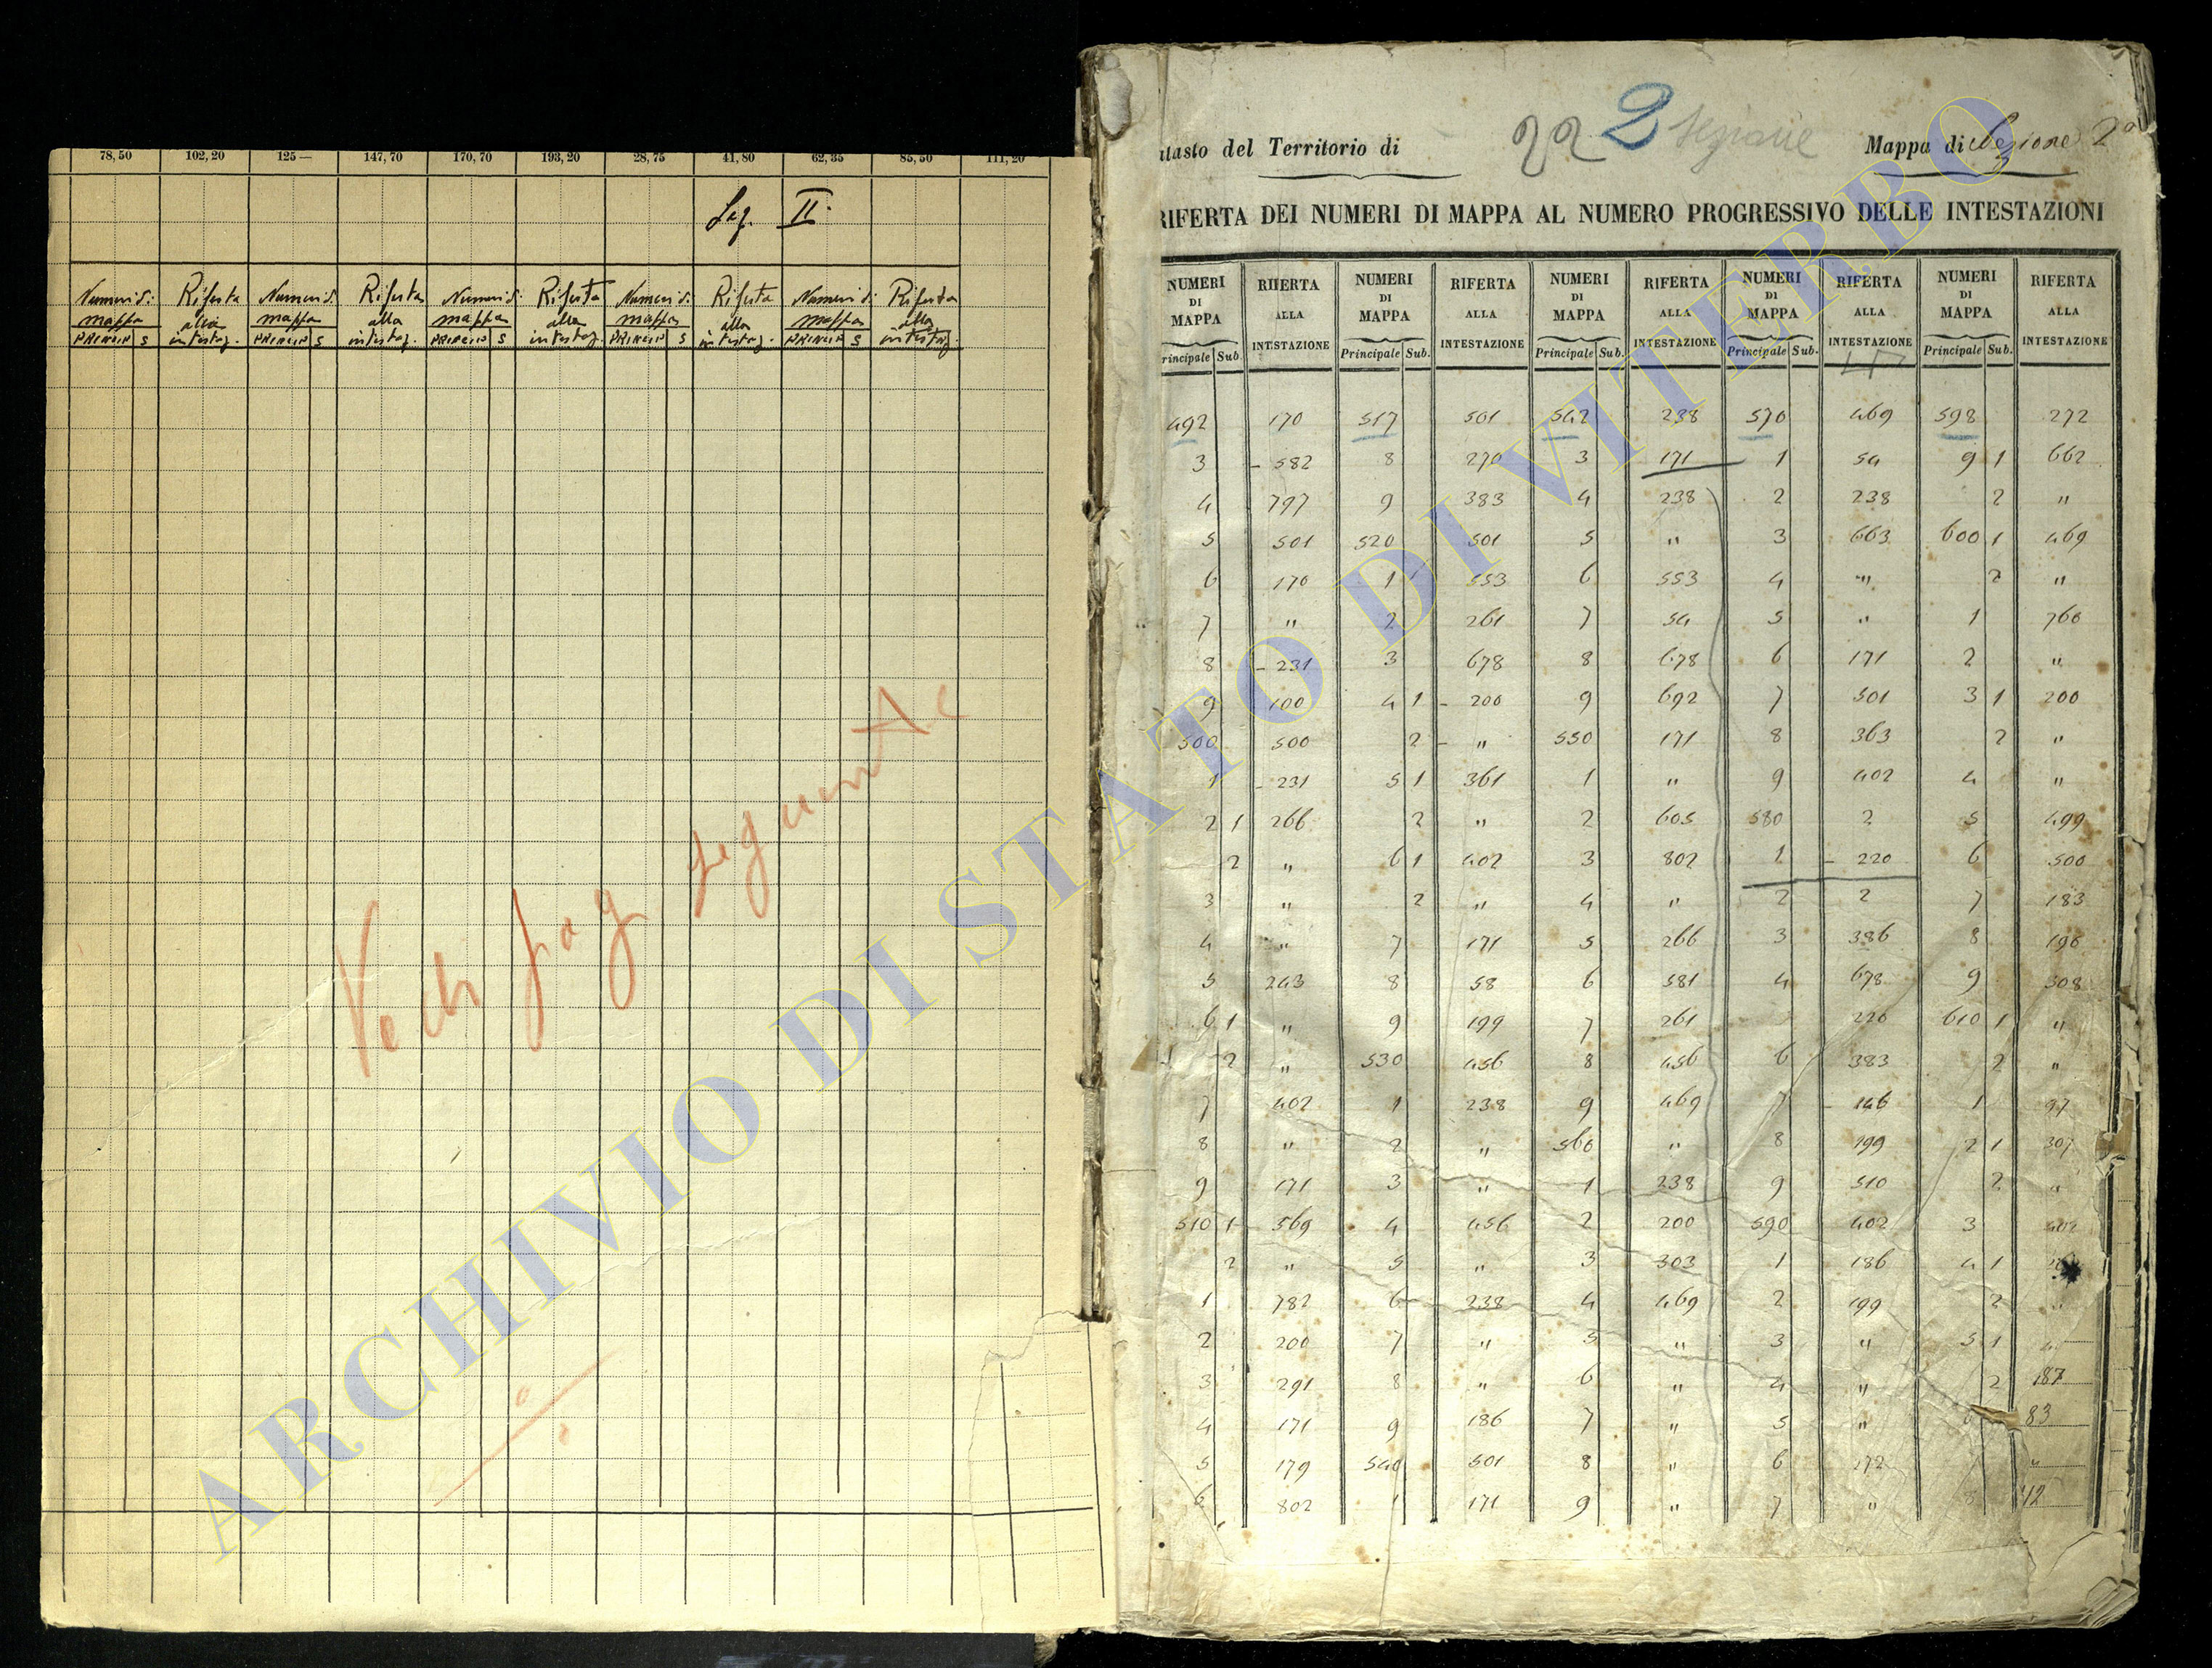 78,50 102,20 125— 147,70 170,70 193,20 28,75 41,80 62,35 85,50 111,20
Seg. II.
Numeri di mappa Riferta alla intestaz. Numeri di mappa Riferta alla intestaz. Numeri di mappa Riferta alla intestaz. Numeri di mappa Riferta alla intestaz. Numeri di mappa Riferta alla intestaz.
PRINCIP S PRINCIP S PRINCIP S PRINCIP S PRINCIP S
Vedi pag. seguente
ARCHIVIO DI STATO DI VITERBO
atasto del Territorio di 22 2 Sezione Mappa di Sezione 2ª
RIFERTA DEI NUMERI DI MAPPA AL NUMERO PROGRESSIVO DELLE INTESTAZIONI
NUMERI DI MAPPA RIFERTA ALLA INTESTAZIONE NUMERI DI MAPPA RIFERTA ALLA INTESTAZIONE NUMERI DI MAPPA RIFERTA ALLA INTESTAZIONE NUMERI DI MAPPA RIFERTA ALLA INTESTAZIONE NUMERI DI MAPPA RIFERTA ALLA INTESTAZIONE
rincipale Sub. Principale Sub. Principale Sub. Principale Sub. Principale Sub.
492 170 517 501 542 238 570 469 598 272
3 - 582 8 270 3 171 1 54 9 1 662
4 797 9 383 4 238 2 238 2 "
5 501 520 501 5 " 3 663 600 1 469
6 170 1 1 553 6 553 4 " 2 "
7 " 2 261 7 54 5 " 1 766
8 - 231 3 678 8 678 6 171 2 "
9 100 4 1 - 200 9 692 7 501 3 1 200
500 500 2 - " 550 171 8 363 2 "
1 - 231 5 1 361 1 " 9 402 4 "
2 1 266 2 " 2 605 580 2 5 499
2 " 6 1 402 3 802 1 - 220 6 500
3 " 2 " 4 " 2 2 7 183
4 " 7 171 5 266 3 386 8 196
5 243 8 58 6 581 4 678 9 308
6 1 " 9 199 7 261 226 610 1 "
2 " 530 456 8 456 6 383 2 "
7 402 1 238 9 469 7 - 146 1 97
8 " 2 " 560 " 8 199 2 1 307
9 171 3 " 1 238 9 510 2 "
510 1 569 4 456 2 200 590 402 3 402
2 " 5 " 3 303 1 186 4 1
1 782 6 238 4 469 2 199 2 "
2 200 7 " 5 " 3 " 5 1 "
3 291 8 " 6 " 4 " 2 187
4 171 9 186 7 " 5 " 83
5 179 540 501 8 " 6 172 "
6 802 1 171 9 " 7 " 8 12